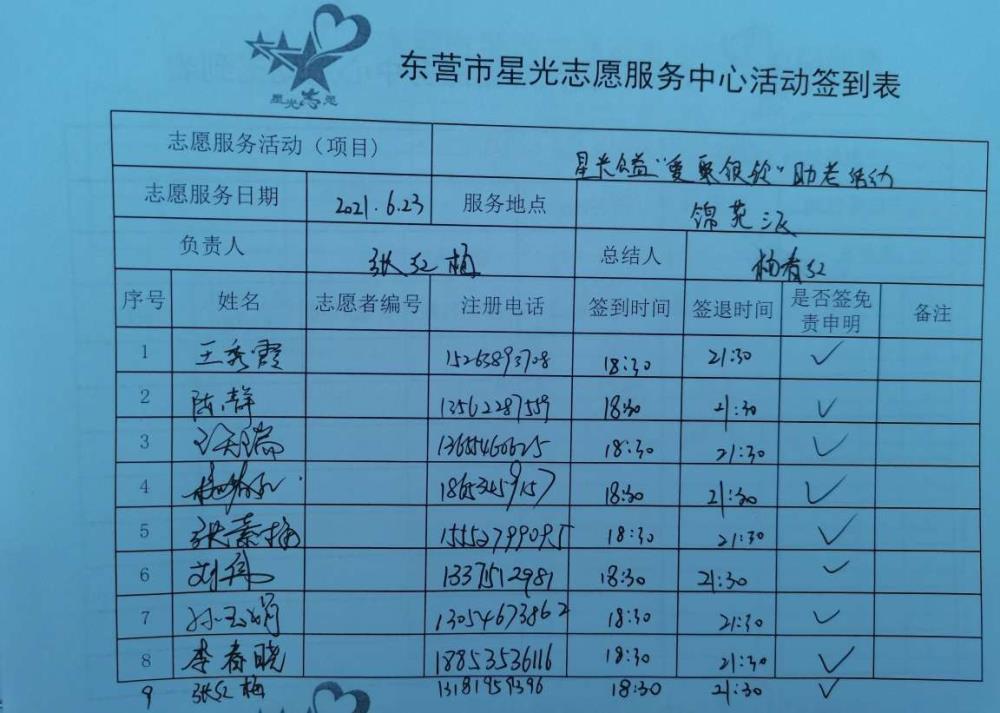 星光志愿
东营市星光志愿服务中心活动签到表
志愿服务活动（项目） 星光公益“爱聚银龄”助老活动
志愿服务日期 2021.6.23 服务地点 锦苑
负责人 张红梅 总结人 杨春红
序号 姓名 志愿者编号 注册电话 签到时间 签退时间 是否签免责申明 备注
1 王秀霞 15263893708 18:30 21:30 ✓
2 陈静 13562287559 18:30 21:30 ✓
3 13655460625 18:30 21:30 ✓
4 18653459157 18:30 21:30 ✓
5 张素梅 15552799095 18:30 21:30 ✓
6 刘伟 13371512981 18:30 21:30 ✓
7 孙玉娟 13054673862 18:30 21:30 ✓
8 李春晓 18853536116 18:30 21:30 ✓
9 张红梅 13181959396 18:30 21:30 ✓